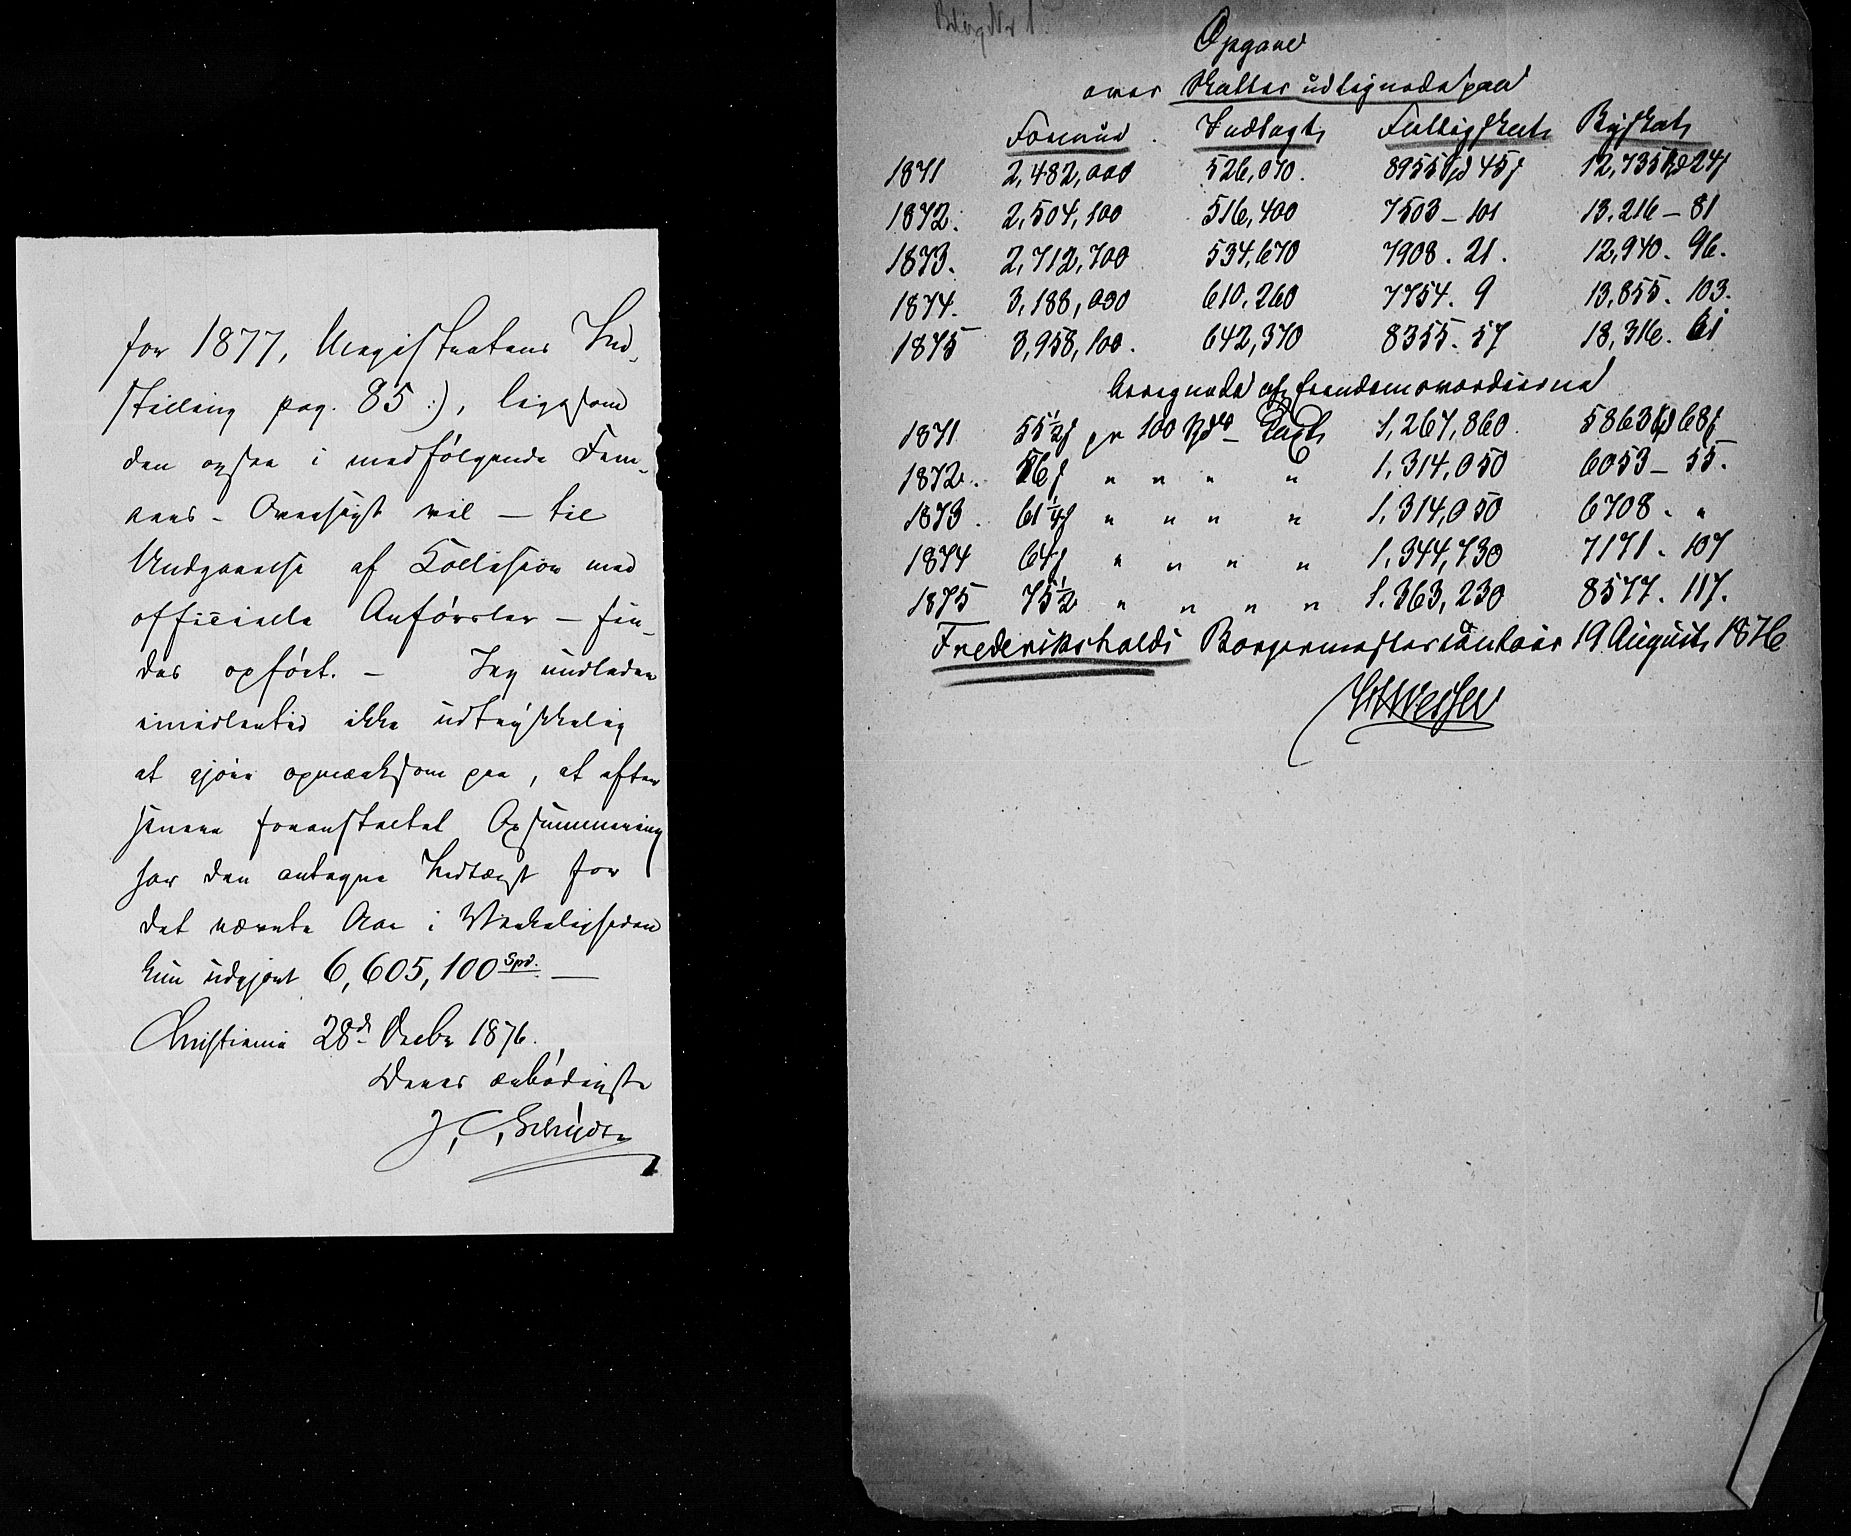 for 1877, Magistratens Ind-
stilling pag. 85 :), ligesom
den ogsaa i medfølgende Fem-
aars - Oversigt vil – til
Undgaaelse af Collision med
officielle Anførsler – fin-
des opført. – Jeg undlader
imidlertid ikke udtrykkelig
at gjøre opmærksom paa, at efter
senere foranstaltet Opsummering
har den antagne Indtægt for
det nævnte Aar i Virkeligheden
kun udgjort 6,605,100 Spd. —
Christiania 28d Decbr 1876.
Deres ærbødigste
J. C. Schydtz
Opgave
over Skatter udlignede paa
Formue Indtægt Fattigskat Byskat
1871 2,482,000 526,070. 8955 Spd 45 s 12,735 Spd 24 s
1872. 2,504,100 516,400 7503 – 101 13.216 – 81
1873. 2,712,700 534,670 7908. 21. 12,940. 96.
1874. 3,188,000 610,260 7754. 9 13.855. 103.
1875 3,958,100. 642,370 8355. 57 18,316. 61
beregnede af Eiendomsværdierne
1871 55½ s pr 100 Spds Taxt 1,267,860. 5863 Spd 68 s
1872. 56 s " " " " 1.314,050 6053 – 55.
1873. 61¼ s " " " " 1.314,050 6708. "
1874 64 s " " " " 1.344,730 7171. 107
1875 75½ " " " " 1.363,230 8577. 117.
Frederikshalds Borgermesterkontoir 19 August 1876